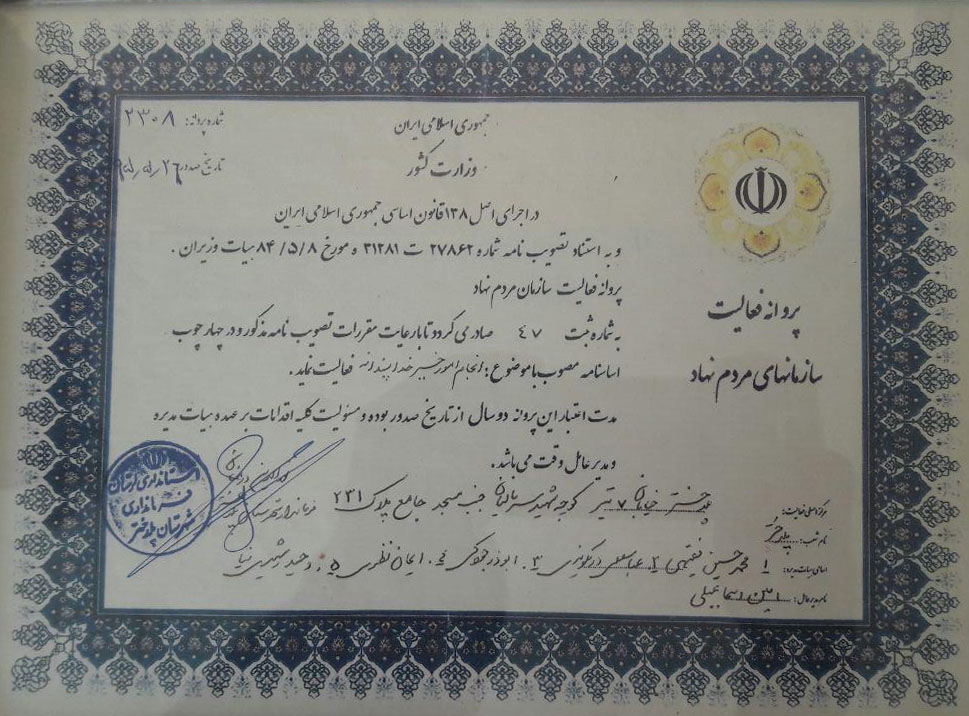 شماره پروانه: ۲۳۰۸
تاریخ صدور:
جمهوری اسلامی ایران
وزارت کشور
در اجرای اصل ۱۳۸ قانون اساسی جمهوری اسلامی ایران
و به استناد تصویب نامه شماره ۲۷۸۶۲ ت ۳۱۲۸۱ ه مورخ ۸۴/۵/۸ هیات وزیران .
پروانه فعالیت سازمان مردم نهاد
به شماره ثبت ۴۷ صادر می گردد تا با رعایت مقررات تصویب نامه مذکور و در چهارچوب
اساسنامه مصوب با موضوع : انجام امور خیر خداپسندانه فعالیت نماید .
مدت اعتبار این پروانه دو سال از تاریخ صدور بوده و مسئولیت کلیه اقدامات بر عهده هیات مدیره
و مدیر عامل وقت می باشد .
پروانه فعالیت
سازمانهای مردم نهاد
مرکز اصلی فعالیت: پلدختر خیابان ۷ تیر کوچه شهید جنب مسجد جامع پلاک ۲۳۱
نام شعب: پلدختر
اسامی هیات مدیره: ۱ محمد حسین ۲. عباسعلی ۳. ابوذر ۴. ایمان نظری ۵. وحید
نام مدیر عامل: امین اسماعیلی
استانداری لرستان
فرمانداری
شهرستان پلدختر